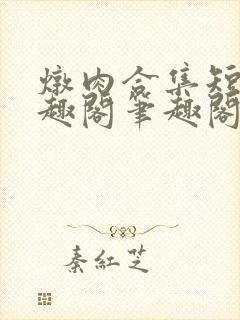 燉肉合集短
趣閣筆趣閣
秦紅芝